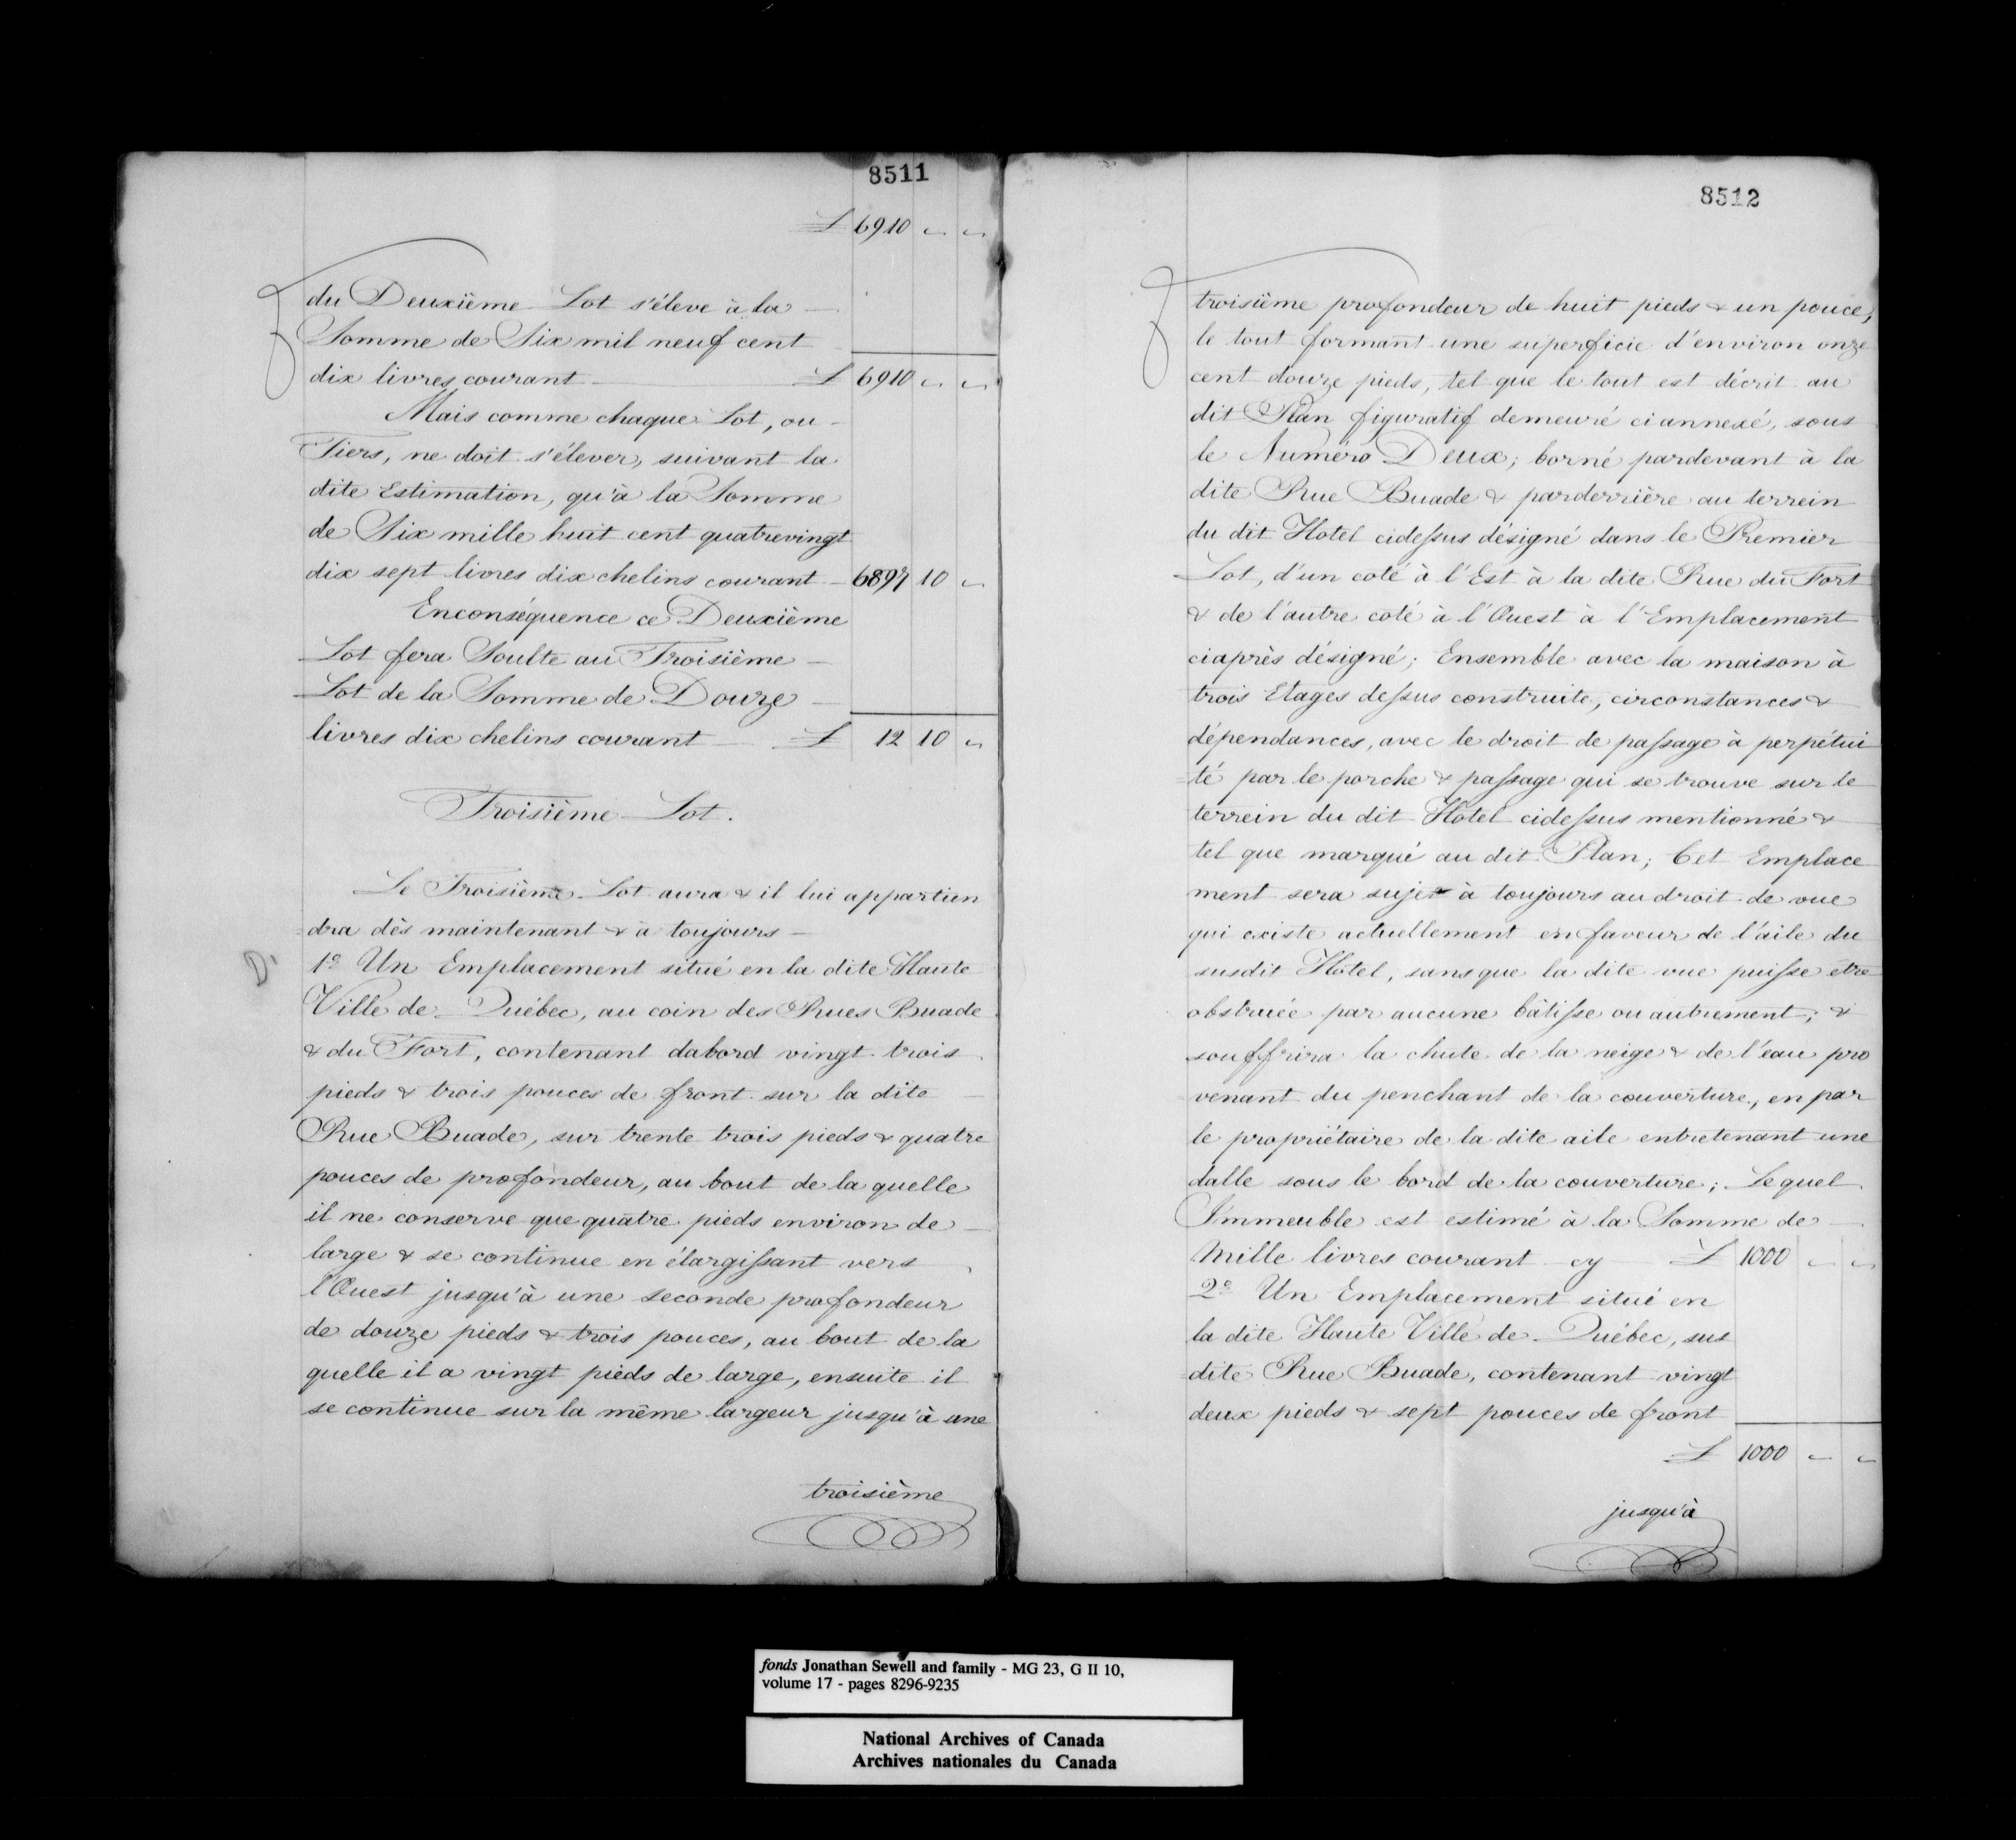 8511
£ 6910 " "
du Deuxième Lot s'éleve à la
Somme de Six mil neuf cent
dix livres courant £ 6910 " "
Mais comme chaque Lot, ou
Tiers, ne doit s'élever, suivant la
dite Estimation, qu'à la Somme
de Six mille huit cent quatrevingt
dix sept livres dix chelins courant 6897 10 "
Enconséquence ce Deuxième
Lot fera Soulte au Troisième
Lot de la Somme de Douze
livres dix chelins courant £ 12 10 "
Troisième Lot.
Le Troisième Lot aura & il lui appartien
=dra dès maintenant & à toujours
1° Un Emplacement situé en la dite Haute
Ville de Québec, au coin des Rues Buade
& du Fort, contenant dabord vingt trois
pieds & trois pouces de front sur la dite
Rue Buade, sur trente trois pieds & quatre
pouces de profondeur, au bout de la quelle
il ne conserve que quatre pieds environ de
large & se continue en élargissant vers
l'Ouest jusqu'à une seconde profondeur
de douze pieds & trois pouces, au bout de la
quelle il a vingt pieds de large, ensuite il
se continue sur la même largeur jusqu'à une
troisième
8512
troisième profondeur de huit pieds & un pouce,
le tout formant une superficie d'environ onze
cent douze pieds, tel que le tout est décrit au
dit Plan figuratif demeuré ci annexé, sous
le Numéro Deux; borné pardevant à la
dite Rue Buade & parderrière au terrein
du dit Hotel cidessus désigné dans le Premier
Lot, d'un coté à l'Est à la dite Rue du Fort
& de l'autre coté à l'Ouest à l'Emplacement
ciaprès désigné; Ensemble avec la maison à
trois Etages dessus construite, circonstances &
dépendances, avec le droit de passage à perpétui
=té par le porche & passage qui se trouve sur le
terrein du dit Hotel cidessus mentionné &
tel que marqué au dit Plan; Cet Emplace
ment sera sujet à toujours au droit de vue
qui existe actuellement en faveur de l'aile du
susdit Hôtel, sans que la dite vue puisse etre
obstruée par aucune bâtisse ou autrement; &
souffrira la chute de la neige & de l'eau pro
=venant du penchant de la couverture, en par
le propriétaire de la dite aile entretenant une
dalle sous le bord de la couverture; Le quel
Immeuble est estimé à la Somme de
Mille livres courant cy £ 1000 " "
2° Un Emplacement situé en
la dite Haute Ville de Québec, sus
=dite Rue Buade, contenant vingt
deux pieds & sept pouces de front
£ 1000 " "
jusqu'à
fonds Jonathan Sewell and family - MG 23, G II 10,
volume 17 - pages 8296-9235
National Archives of Canada
Archives nationales du Canada